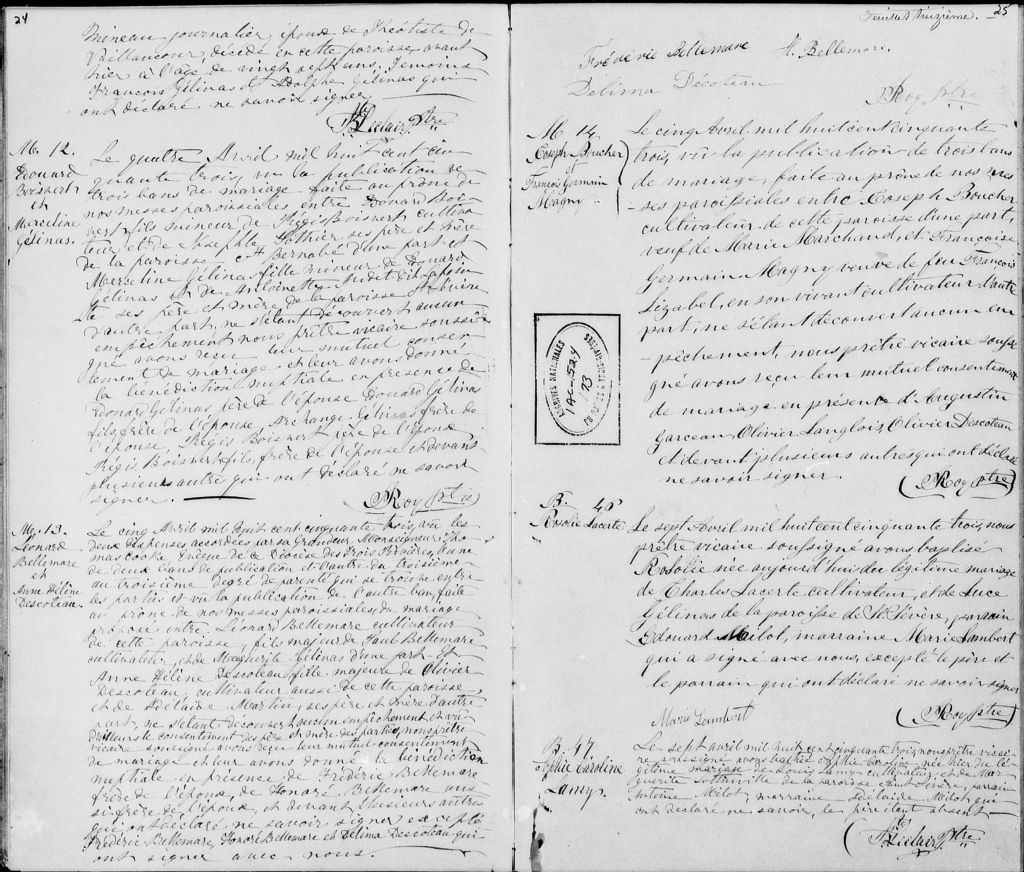 24
Mineau journalier, épouse de Théotiste de
Vaillancour, décédé en cette paroisse avant
hier à l'âge de vingt sept ans. Témoins
François Gélinas et Adolphe Gélinas qui
ont déclaré ne savoir signer
Leclair Ptre
M. 12.
Edouard
Boisvert
et
Marceline
Gélinas.
Le quatre Avril mil huit cent cin
quante trois, vu la publication de
trois bans de mariage faite au prône de
nos messes paroissiales entre Edouard Boi
vert fils mineur de Régis Boisvert cultiva
teur et de Josephte Lothier ses père et mère
de la paroisse St Bernabé d'une part et
Marceline Gélinas fille mineure de Edouard
Gélinas et de Antoinette
ses père et mère de la paroisse St Sévère
d'autre part, ne s'étant découvert aucun
empêchement nous prêtre vicaire soussi
gné avons reçu leur mutuel consen
tement de mariage et leur avons donné
la bénédiction nuptiale en présence de
Edouard Gélinas, père de l'épouse Edouard Gélinas
fils frère de l'épouse, Archange Gélinas frère de
l'épouse, Régis Boisvert père de l'époux
Régis Boisvert fils, frère de l'époux et devant
plusieurs autres qui ont déclaré ne savoir
signer.
Roy Ptre
M. 13.
Léonard
Bellemare
et
Anne Hélène
Descoteau.
Le cinq Avril mil huit cent cinquante trois, vû les
deux dispenses accordées par sa Grandeur Monseigneur Tho
mas Cooke Evêque de ce Diocèse des Trois Rivières, l'une
de deux bans de publication et l'autre du troisième
au troisième degré de parenté qui se trouve entre
les parties et vû la publication de l'autre ban, faite
au prône de nos messes paroissiales, du mariage
proposé entre Léonard Bellemare cultivateur
de cette paroisse, fils majeur de Paul Bellemare
cultivateur, et de Marguerite Gélinas d'une part et
Anne Hélène Descoteau, fille majeure de Olivier
Descoteau, cultivateur aussi de cette paroisse
et de Adélaide Martin, ses père et mère d'autre
part, ne s'étant découvert aucun empêchement et vû
d'ailleurs le consentement des père et mère des parties, nous prêtre
vicaire soussigné avons reçu leur mutuel consentement
de mariage et leur avons donné la bénédiction
nuptiale en présence de Frédéric Bellemare
frère de l'époux, de Honoré Bellemare aus
si frère de l'époux, et devant plusieurs autres
qui ont déclaré ne savoir signer excepté
Frédéric Bellemare, Honoré Bellemare et Délina Descoteau qui
ont signer avec nous.
Feuillet treizième. 25
Frédéric Bellemare H. Bellemare.
Delima Décoteau
Roy Ptre
M. 14.
Joseph Boucher
et
François Germain
Magny
Le cinq Avril mil huit cent cinquante
trois, vû la publication de trois bans
de mariage, faite au prône de nos mes
-ses paroissiales entre Joseph Boucher
cultivateur de cette paroisse d'une part,
veuf de Marie Marchand, et Françoise
Germain Magny veuve de feu François
Lizabel, en son vivant cultivateur d'autre
part; ne s'étant découvert aucun em
-pêchement, nous prêtre vicaire soussi
gné avons reçu leur mutuel consentement
de mariage en présence d'Augustin
Garceau, Olivier Langlois, Olivier Descoteau
et devant plusieurs autres qui ont déclaré
ne savoir signer.
Roy Ptre
ARCHIVES NATIONALES
AC-524
193
B. 46
Rosolie Lacerte
Le sept Avril mil huit cent cinquante trois, nous
prêtre vicaire soussigné avons baptisé
Rosolie née aujourd'hui du légitime mariage
de Charles Lacerte cultivateur, et de Luce
Gélinas de la paroisse de St. Sévère, parrain
Edouard Milot, marraine Marie Lambert
qui a signé avec nous, excepté le père et
le parrain qui ont déclaré ne savoir signer
Marie Lambert
Roy Ptre
B. 47
Sophie Caroline
Lamy.
Le sept avril mil huit cent cinquante trois, nous prêtre vicai
re soussigné avons baptisé Sophie Caroline née hier du lé
gitime mariage de Louis Lamy cultivateur, et de Mar
guerite de la paroisse Saint Sévère, parrain
Antoine Milot, marraine Adélaide Milot qui
ont déclaré ne savoir, le père étant absent
Leclair Ptre